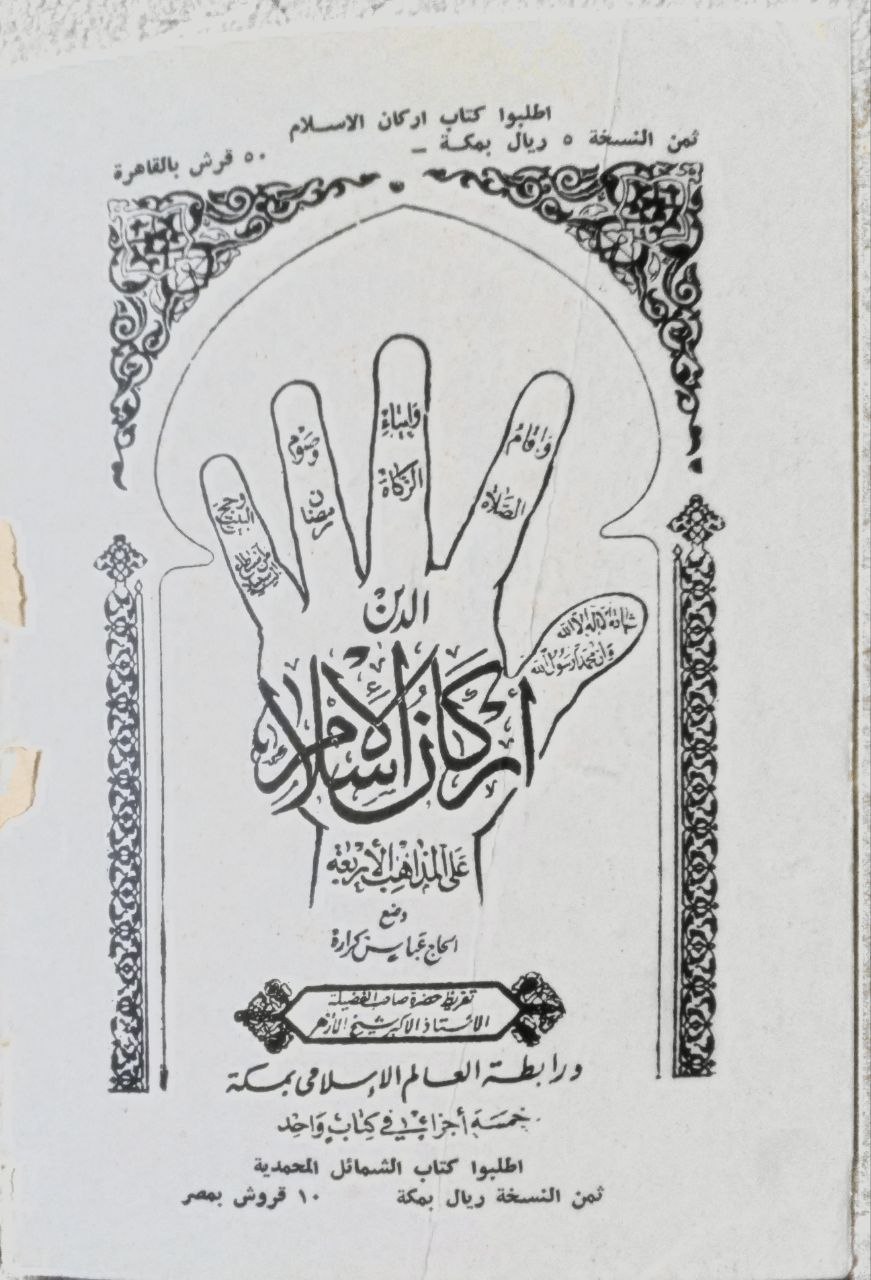 اطلبوا كتاب اركان الاسلام
ثمن النسخة ٥ ريال بمكة - ٥٠ قرش بالقاهرة
شهادة لا إله إلا الله
وأن محمد رسول الله
واقام
الصلاة
وايتاء
الزكاة
وصوم
رمضان
وحج
البيت
من استطاع
إليه سبيلا
الدين
أركان الإسلام
على المذاهب الأربعة
وضع
الحاج عباس كرارة
تقريظ حضرة صاحب الفضيلة
الأستاذ الأكبر شيخ الأزهر
ورابطة العالم الإسلامى بمكة
خمسة أجزاء في كتاب واحد
اطلبوا كتاب الشمائل المحمدية
ثمن النسخة ريال بمكة ١٠ قروش بمصر